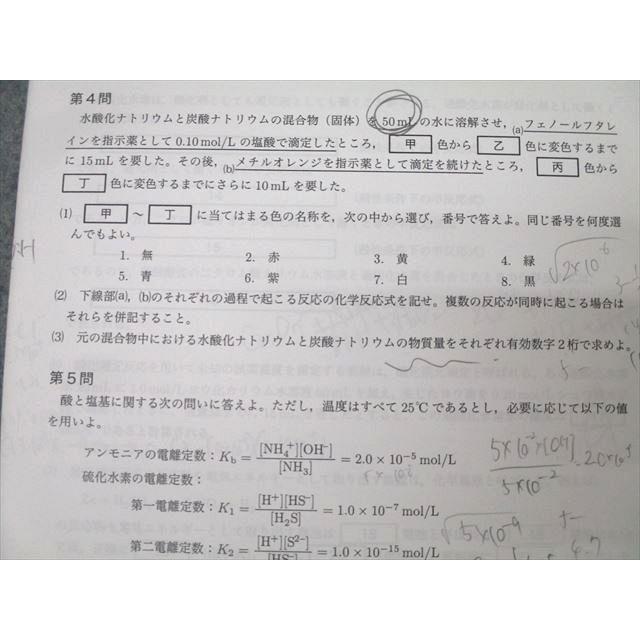 第4問
水酸化ナトリウムと炭酸ナトリウムの混合物(固体)を 50 mL の水に溶解させ,(a)フェノールフタレ
インを指示薬として 0.10 mol/L の塩酸で滴定したところ, 甲 色から 乙 色に変色するまで
に 15 mL を要した。その後,(b)メチルオレンジを指示薬として滴定を続けたところ, 丙 色から
丁 色に変色するまでにさらに 10 mL を要した。
(1) 甲 ~ 丁 に当てはまる色の名称を,次の中から選び,番号で答えよ。同じ番号を何度選
んでもよい。
1. 無 2. 赤 3. 黄 4. 緑
5. 青 6. 紫 7. 白 8. 黒
√2×10⁻⁶
(2) 下線部(a), (b)のそれぞれの過程で起こる反応の化学反応式を記せ。複数の反応が同時に起こる場合は
それらを併記すること。
(3) 元の混合物中における水酸化ナトリウムと炭酸ナトリウムの物質量をそれぞれ有効数字2桁で求めよ。
第5問
酸と塩基に関する次の問いに答えよ。ただし,温度はすべて 25℃ であるとし,必要に応じて以下の値
を用いよ。
アンモニアの電離定数:K_b = [NH₄⁺][OH⁻] / [NH₃] = 2.0 × 10⁻⁵ mol/L
硫化水素の電離定数:
第一電離定数:K₁ = [H⁺][HS⁻] / [H₂S] = 1.0 × 10⁻⁷ mol/L
第二電離定数:K₂ = [H⁺][S²⁻] / [HS⁻] = 1.0 × 10⁻¹⁵ mol/L
√5×10⁻⁹